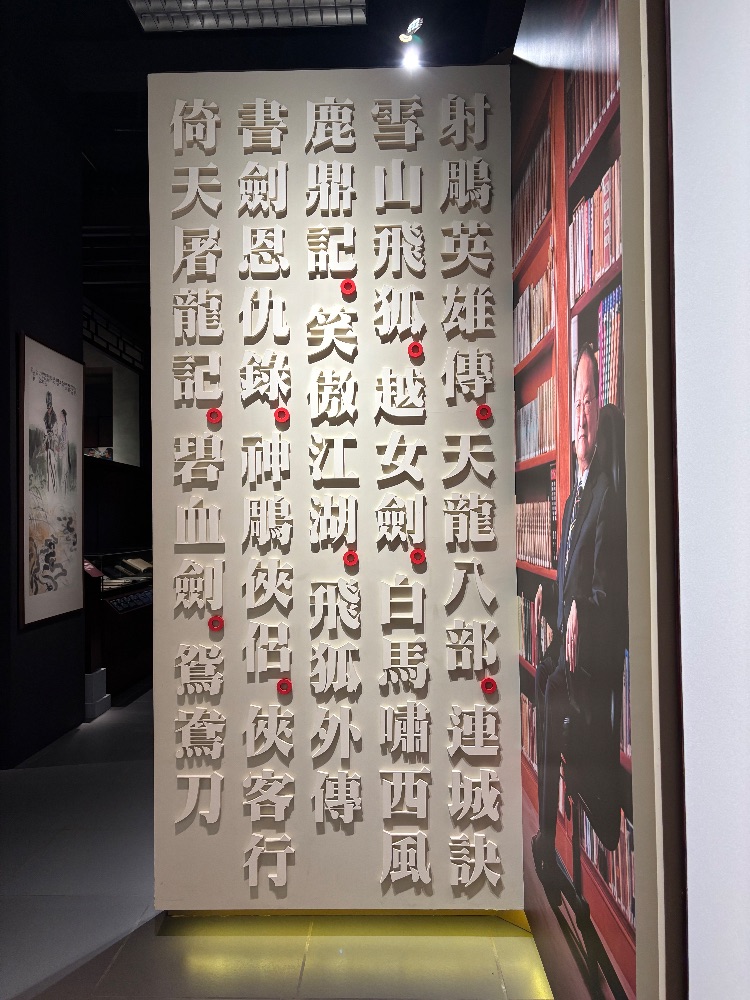 射鵰英雄傳。天龍八部。連城訣
雪山飛狐。越女劍。白馬嘯西風
鹿鼎記。笑傲江湖。飛狐外傳
書劍恩仇錄。神鵰俠侶。俠客行
倚天屠龍記。碧血劍。鴛鴦刀